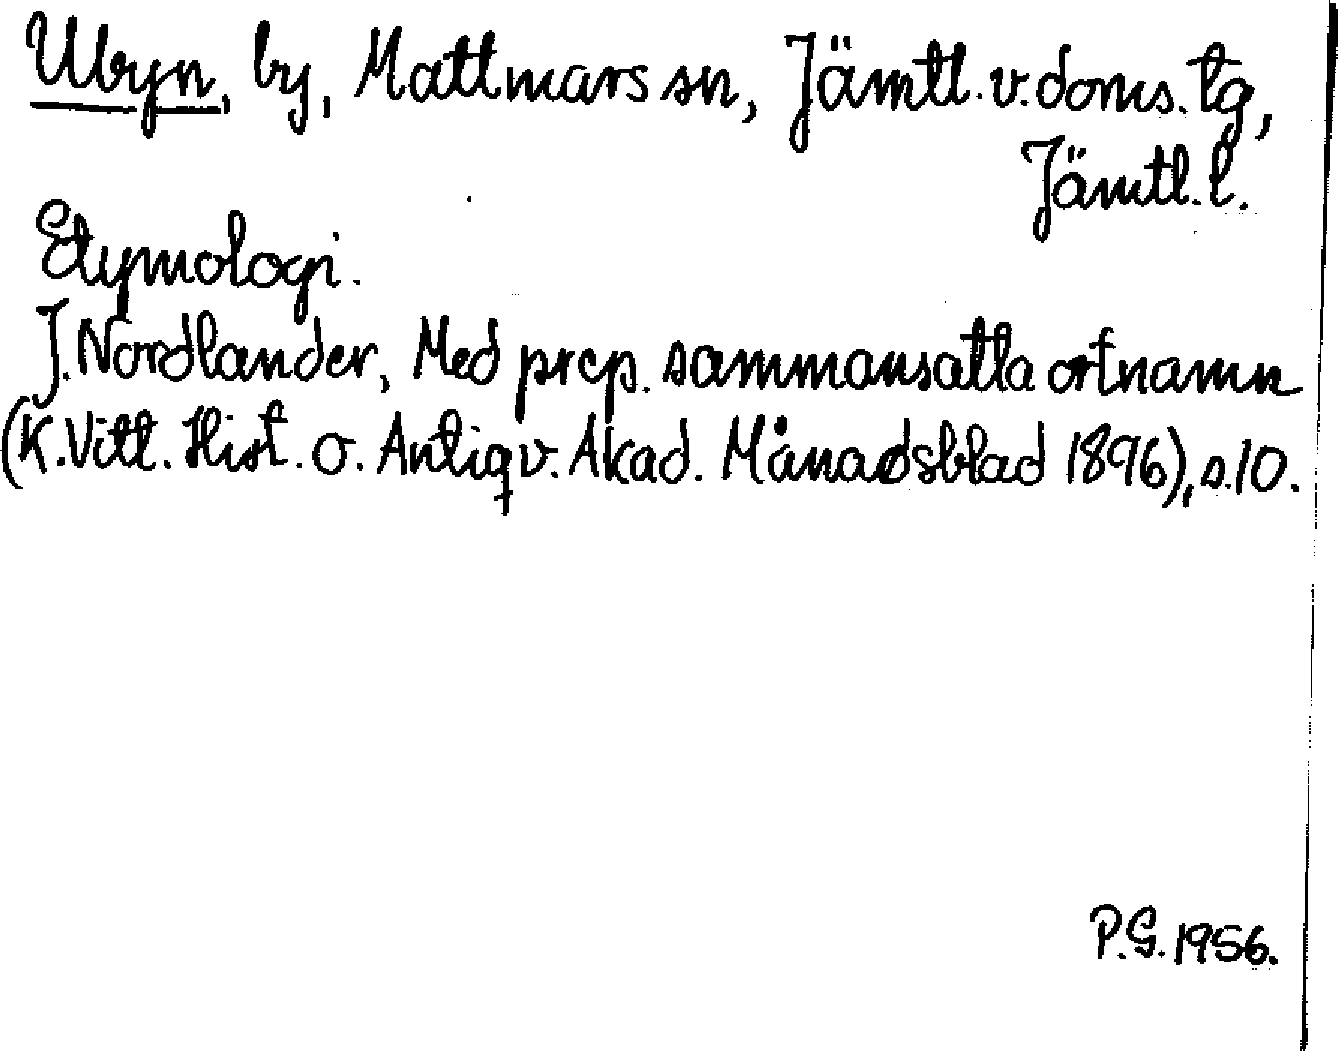 Ubyn, by, Mattmars sn, Jämtl. v. doms. tg,
Jämtl. l.
Etymologi.
J. Nordlander, Med prep. sammansatta ortnamn
(K. Vitt. Hist. o. Antiqv. Akad. Månadsblad 1896), s. 10.
P.G. 1956.